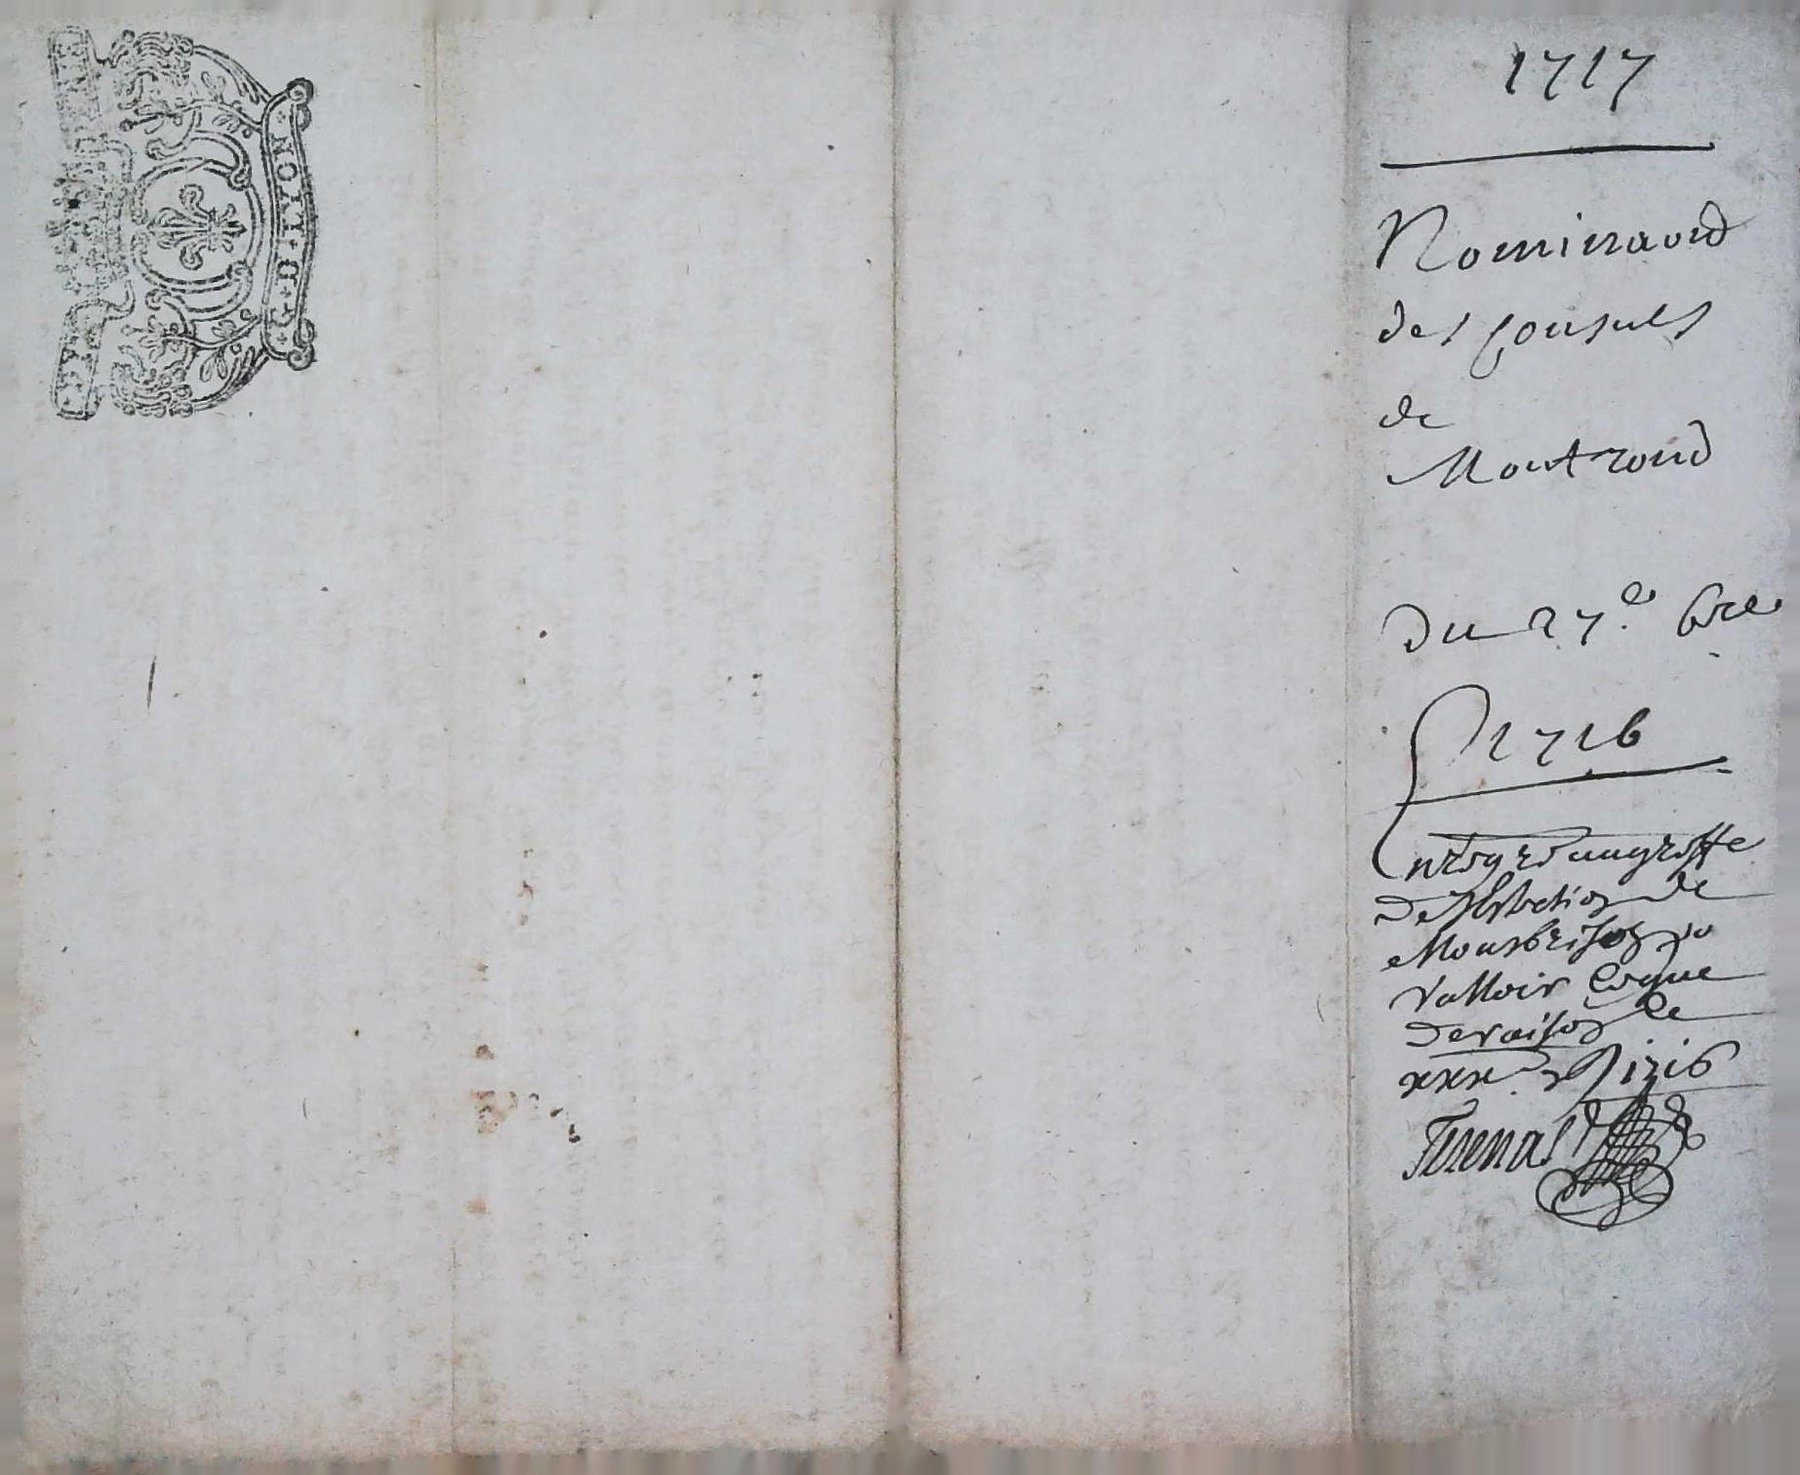 1717
Nominaōnd
des Consuls
de
Montrond
Du 27.e 8bre
1716
Enregré au greffe
de l'Election de
Montbrison po
valloir Ce que
de raison Le
xxxe 8 1716
LYON